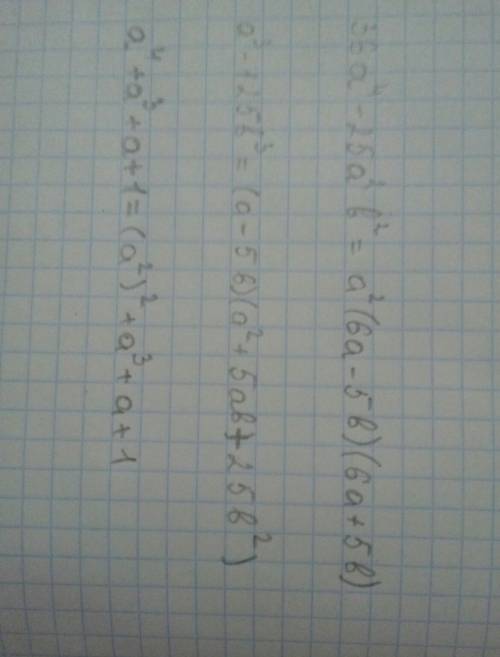 36a⁴ - 25a²b² = a²(6a - 5b)(6a + 5b)
a³ - 125b³ = (a - 5b)(a² + 5ab + 25b²)
a⁴ + a³ + a + 1 = (a²)² + a³ + a + 1